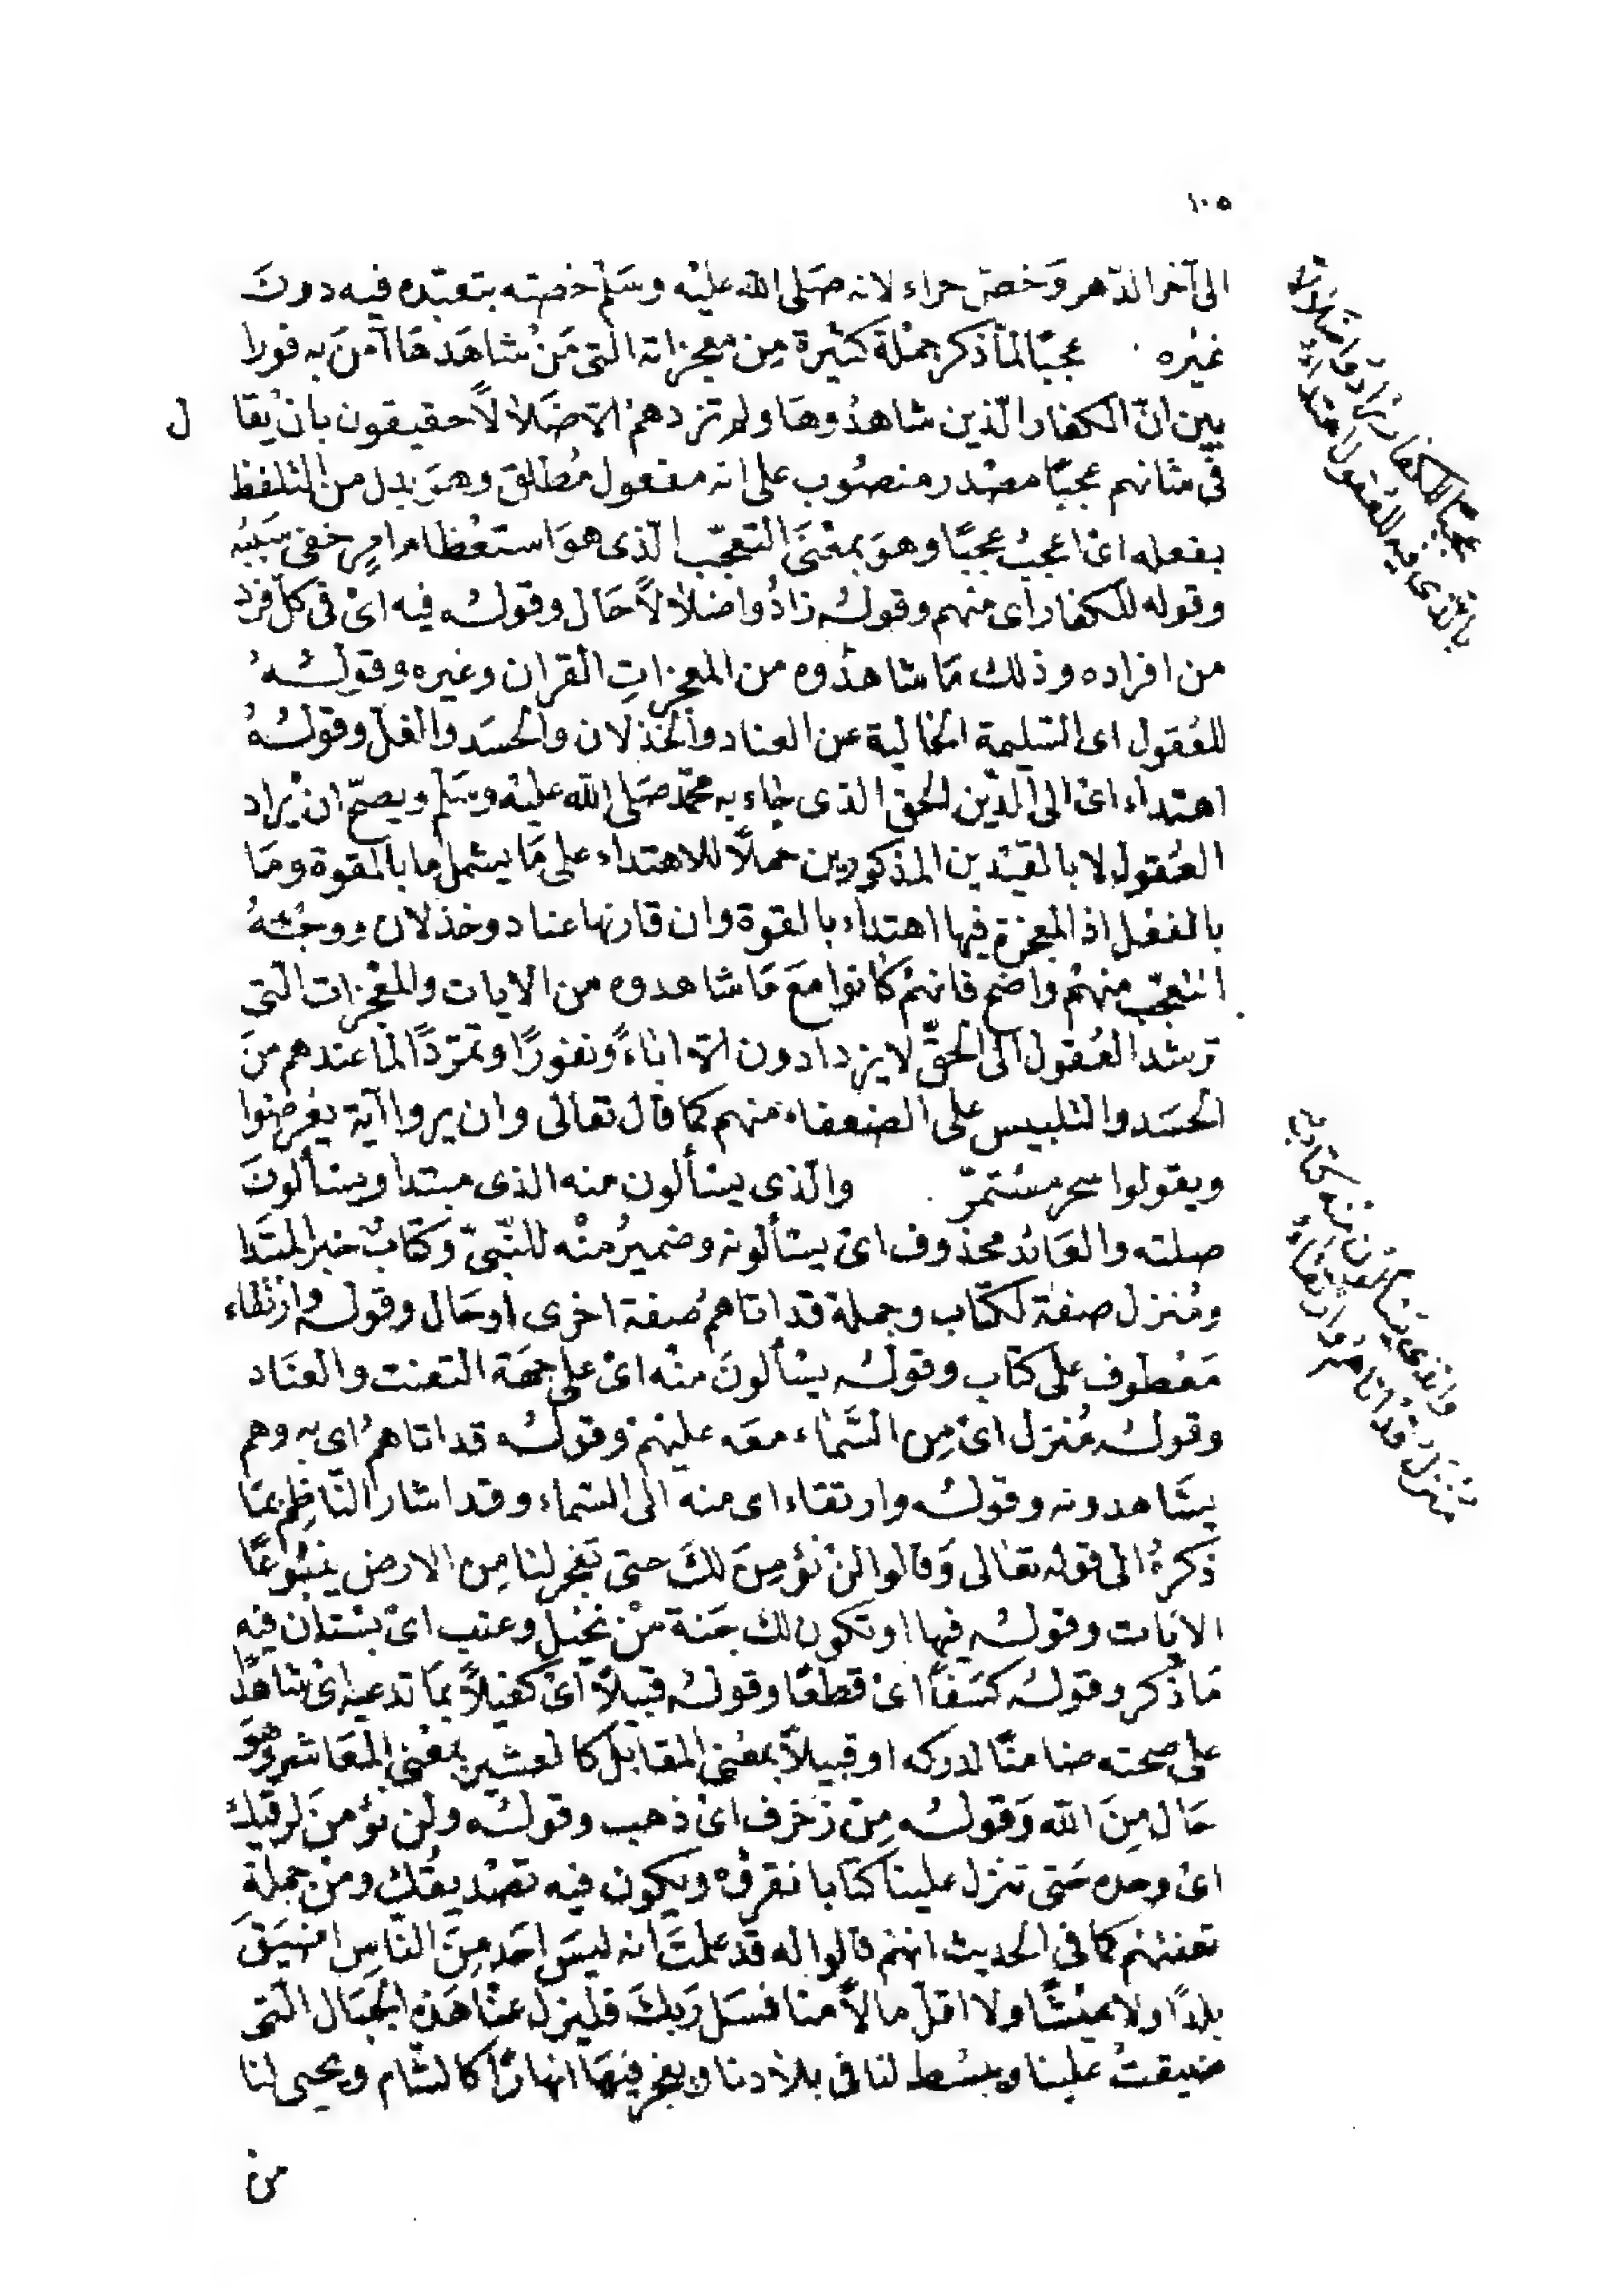 ١٠٥
الى آخر الدّهر وَخصّ حراء لانه صَلى الله عليْه وسَلم خصّته بتعبّده فيه دونَ
غيْره عجبًا لمّا ذكر جمْلة كثيْرة مِن معجزاته التى مَنْ شاهَدهَا آمنَ به فورا
بين انّ الكفار الّذين شاهدُوهَا ولم تزدهمْ الّا ضَلالًا حقيقون بانْ يُقال
فى شانهم عجبًا مصْدر منصُوب على انه مفعول مُطلق وهوَ بدل من التلفظ
بفعله اىْ اعجبُ عجبًا وهوَ بمعْنىَ التعجّب الّذى هوَ استعْظام امرٍ خفى سَببُه
وقوله للكفار اى منهم وقولُه زادُوا ضلالًا حَال وقولُه فيه اىْ فى كلّ فرْد
من افراده وذلك مَا شاهدُوه من المعجزاتِ القران وغيره وقولُهُ
للعُقول اى السّليمة الخالية عن العناد والخذلان والحسَد والغلّ وقولُهُ
اهتداء اىْ الى الدّين الحقّ الذى جاء به محمّد صَلى الله عليْه وسَلم ويصحّ ان يُراد
العُقول لا بالقيْدين المذكورين حملًا للاهتداء على مَا يشمل ما بالقوة ومَا
بالفعْل اذ المعجزة فيها اهتداء بالقوة وان قارنها عناد وخذلان ووجْهُهُ
التعجّب منهُم واضح فانهُم كانوا مَعَ مَا شاهدوه من الايات والمعْجزات الّتى
ترشد العُقول الى الحقّ لا يزدادون الّا اباءً ونفورًا وتمرّدًا لما عندهم منَ
الحسَد والتلبيس على الضعفاء منهم كما قال تعالى وان يروا آية يعْرضُوا
ويقولوا سحر مسْتمرّ والّذى يسْألون منه الذى مبتدا ويسْألونَ
صلته والعَائد محذوف اىْ يسْألونه وضميرُ منْه للنّبىّ وكتابٌ خبر المبتَدا
ومُنزل صفة لكتاب وجملة قد اتاهمُ صفة اخرى او حَال وقولُه وارتقاء
مَعْطوف على كتاب وقولُه يسْألونَ منْه اىْ على جهَة التعنت والعنَاد
وقولُه مُنزل اىْ مِن السَّمَاء معَه عليهمْ وقولُه قد اتاهمُ اى به وهم
يشَاهدونه وقولُه وارتقاء اى منه الى السّماء وقد اشار النّاظِم بمَا
ذكرهُ الى قوله تعَالى وَقالوا لنْ نؤمِنَ لكَ حتى تفجر لنا مِن الارض ينبُوعًا
الايَات وقولُه فيها او تكون لك جَنة منْ نخيلٍ وعنب اىْ بسْتان فيه
مَا ذُكر وقولُه كسَفًا اىْ قطعًا وقولُه قبيلًا اىْ كفيلًا بمَا تدعيه اىْ شاهدًا
على صحته ضامنًا لدركه او قبيلًا بمعْنى المقابل كالعشير بمعْنى المعَاشر وهوَ
حَال مِنَ الله وَقولُه مِنْ زخرف اىْ ذهب وقولُه ولن نؤمنَ لرقيّك
اىْ وحده حَتى تنزل علينا كتابا نقرؤه ويكون فيه تصْديقُك ومنْ جملَةِ
تعنتهم كما فى الحديث انهمْ قالوا له قدْ علمتَ انه ليسَ احَد مِنَ النّاسِ اضيَقَ
بلدًا ولا عيْشًا ولا اقلّ مالًا منا فسَل رَبكَ فليزل عنّا هَذه الجبَال الّتى
ضيقتْ علينا ويبسُط لنا فى بلادنا ويفجر فيهَا انهارًا كالشّام ويحيى لنا
من
عجبًا للكفار زادُوا ضَلالًا
بالّذى فيه للعُقول اهتداءُ
والّذى يَسْألُون منه كتابٌ
مُنزلٌ قدْ اتاهمُ وارتقاءُ